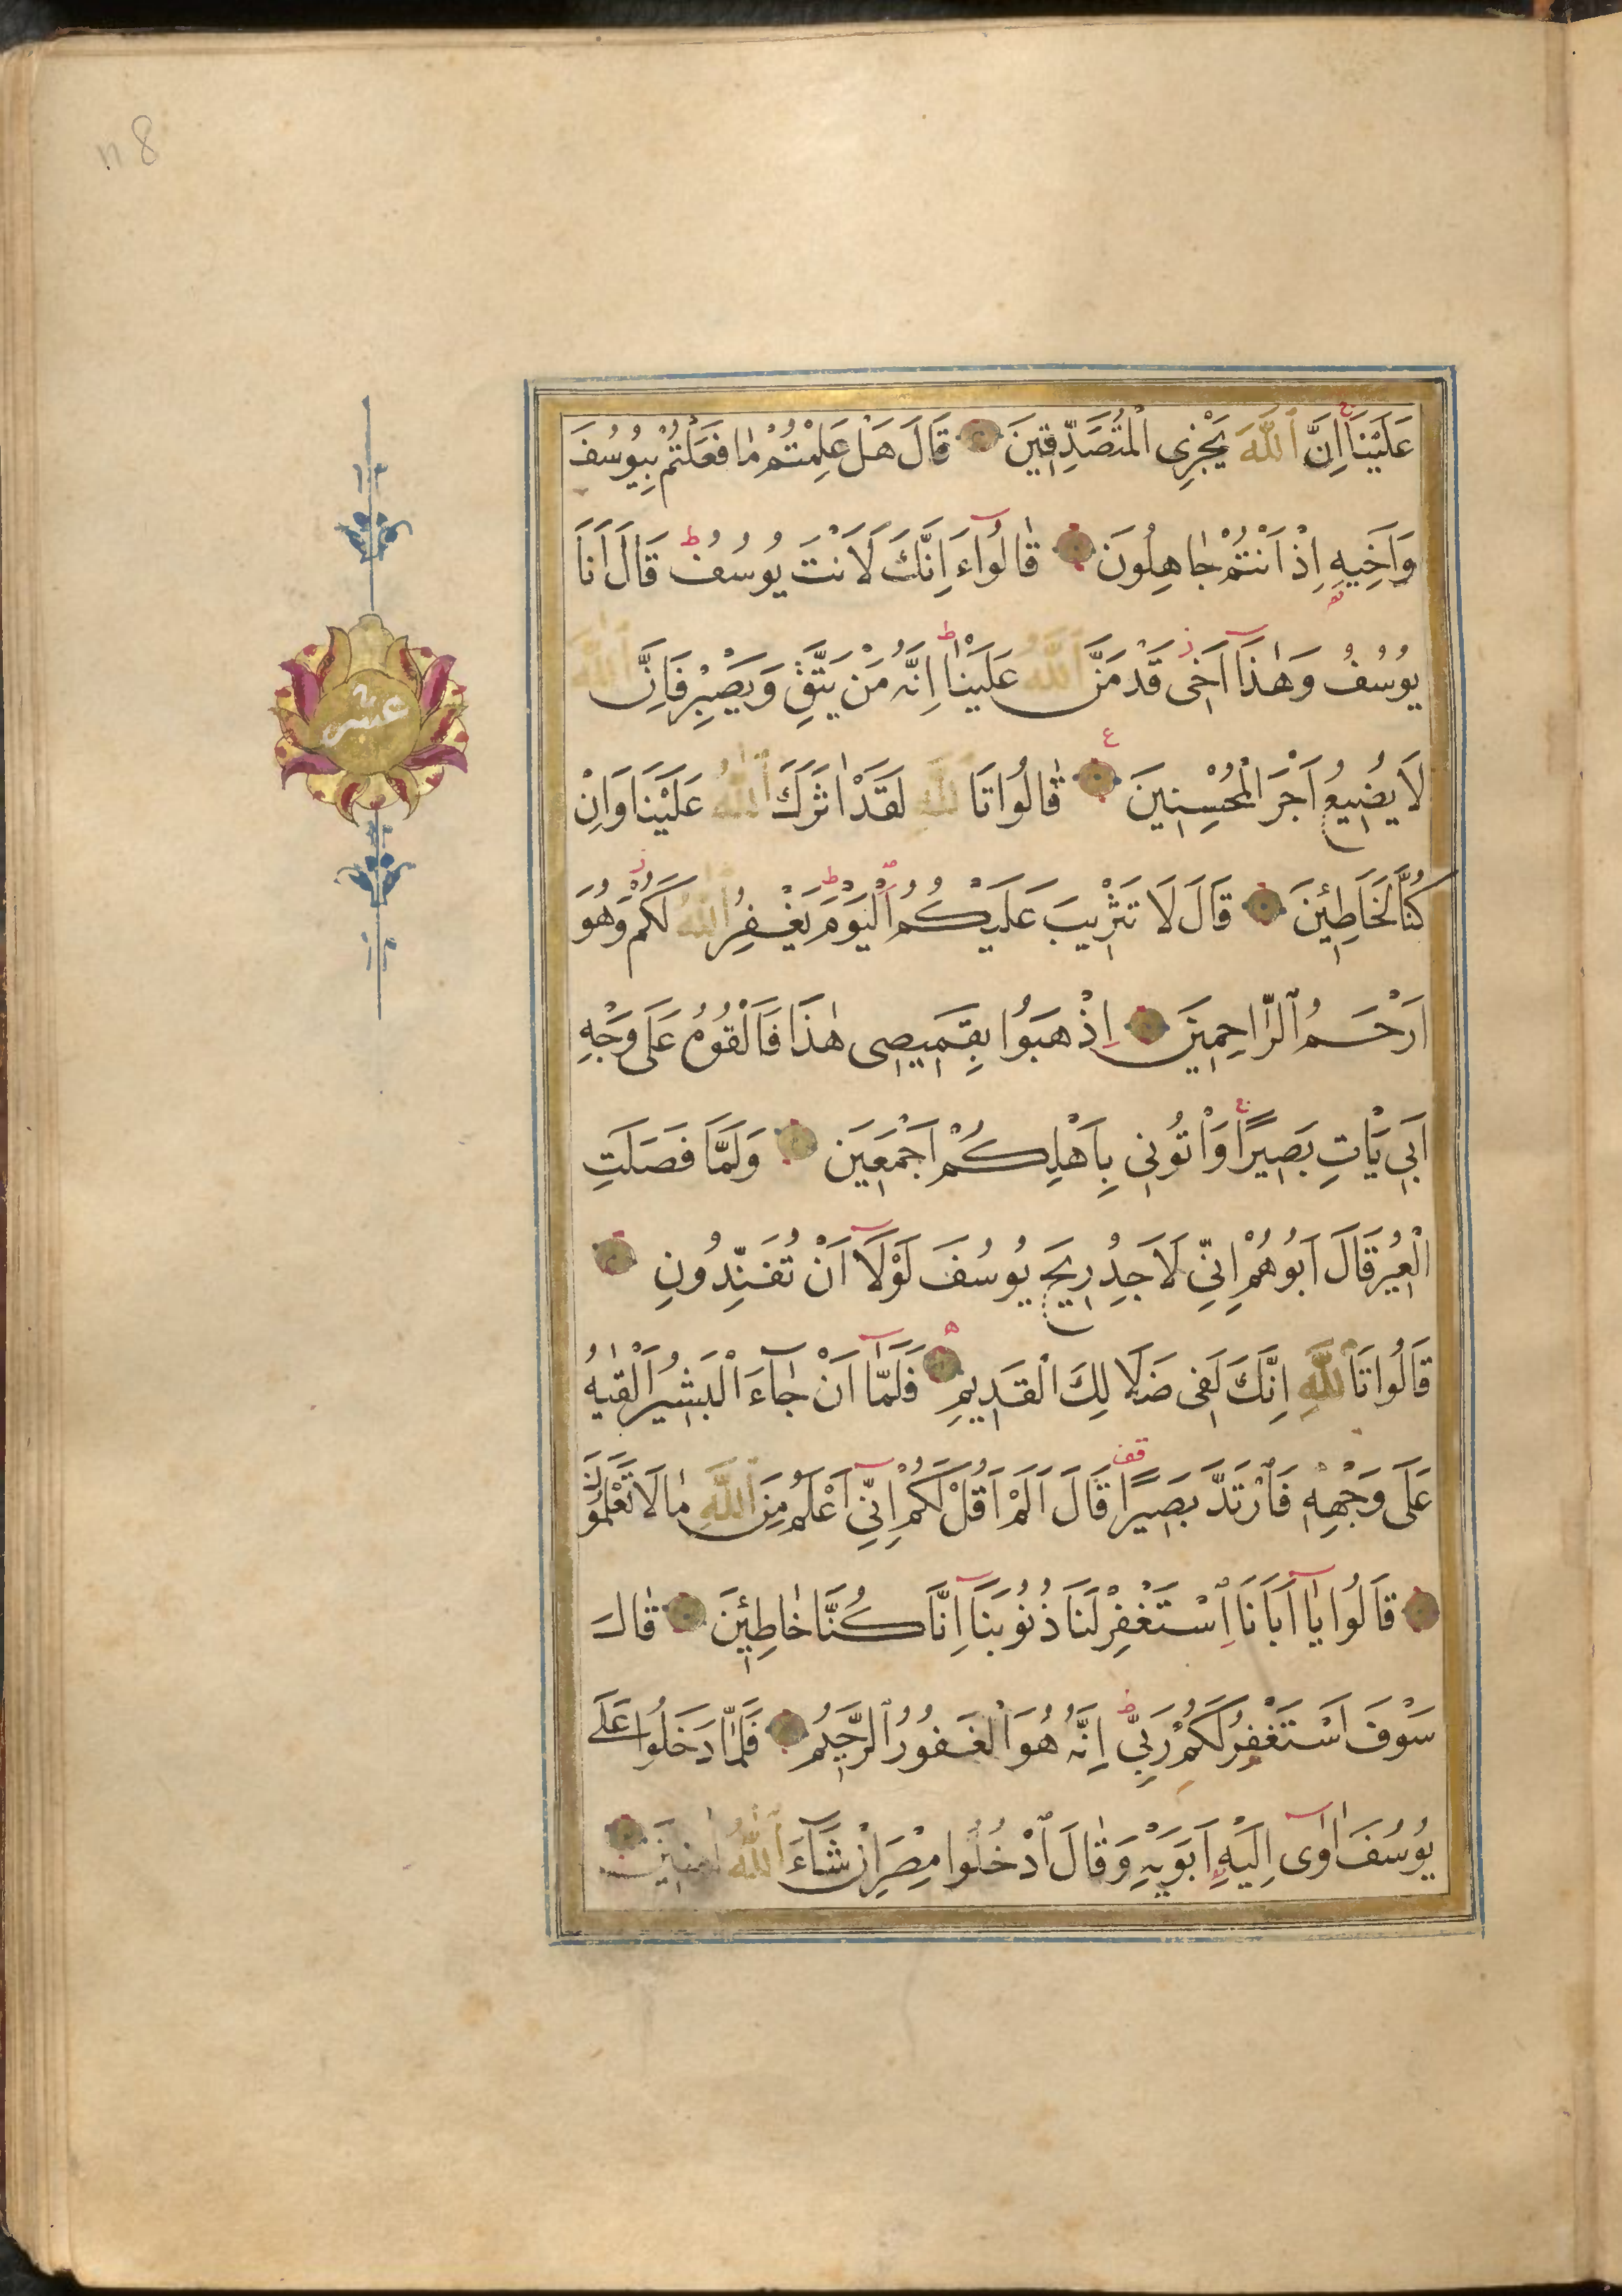 n 8
عَلَيْنَا اِنَّ ٱللّٰهَ يَجْزِى الْمُتَصَدِّقِينَ قَالَ هَلْ عَلِمْتُمْ مٰا فَعَلْتُمْ بِيُوسُفَ
وَاَخِيهِ اِذْ اَنْتُمْ جٰاهِلُونَ قٰالُوٓا ءَاِنَّكَ لَاَنْتَ يُوسُفُ قَالَ اَنَا
يُوسُفُ وَهٰذَٓا اَخِى قَدْ مَنَّ ٱللّٰهُ عَلَيْنٰا اِنَّهُ مَنْ يَتَّقِ وَيَصْبِرْ فَاِنَّ ٱللّٰهَ
لَا يُضِيعُ اَجْرَ الْمُحْسِنِينَ قٰالُوا تَاللّٰهِ لَقَدْ اٰثَرَكَ ٱللّٰهُ عَلَيْنَا وَاِنْ
كُنَّا لَخَاطِئِينَ قَالَ لَا تَثْرِيبَ عَلَيْكُمُ الْيَوْمَ يَغْفِرُ ٱللّٰهُ لَكُمْ وَهُوَ
اَرْحَمُ ٱلرَّاحِمِينَ اِذْهَبُوا بِقَمِيصِى هٰذَا فَاَلْقُوهُ عَلَى وَجْهِ
اَبِى يَاْتِ بَصِيرًا وَاْتُونِى بِاَهْلِكُمْ اَجْمَعِينَ وَلَمَّا فَصَلَتِ
الْعِيرُ قَالَ اَبُوهُمْ اِنِّى لَاَجِدُ رِيحَ يُوسُفَ لَوْلَٓا اَنْ تُفَنِّدُونِ
قَالُوا تَاللّٰهِ اِنَّكَ لَفِى ضَلَالِكَ الْقَدِيمِ فَلَمَّٓا اَنْ جٰٓاءَ الْبَشِيرُ اَلْقٰيهُ
عَلَى وَجْهِهِ فَارْتَدَّ بَصِيرًا قَالَ اَلَمْ اَقُلْ لَكُمْ اِنِّٓى اَعْلَمُ مِنَ ٱللّٰهِ مٰا لَا تَعْلَمُونَ
قَالُوا يٰٓا اَبَانَا ٱسْتَغْفِرْ لَنَا ذُنُوبَنَٓا اِنَّا كُنَّا خٰاطِئِينَ قٰالَ
سَوْفَ اَسْتَغْفِرُ لَكُمْ رَبِّى اِنَّهُ هُوَ الْغَفُورُ ٱلرَّحِيمُ فَلَمَّا دَخَلُوا عَلَى
يُوسُفَ اٰوٰٓى اِلَيْهِ اَبَوَيْهِ وَقٰالَ ٱدْخُلُوا مِصْرَ اِنْ شَٓاءَ ٱللّٰهُ اٰمِنِينَ
عشر